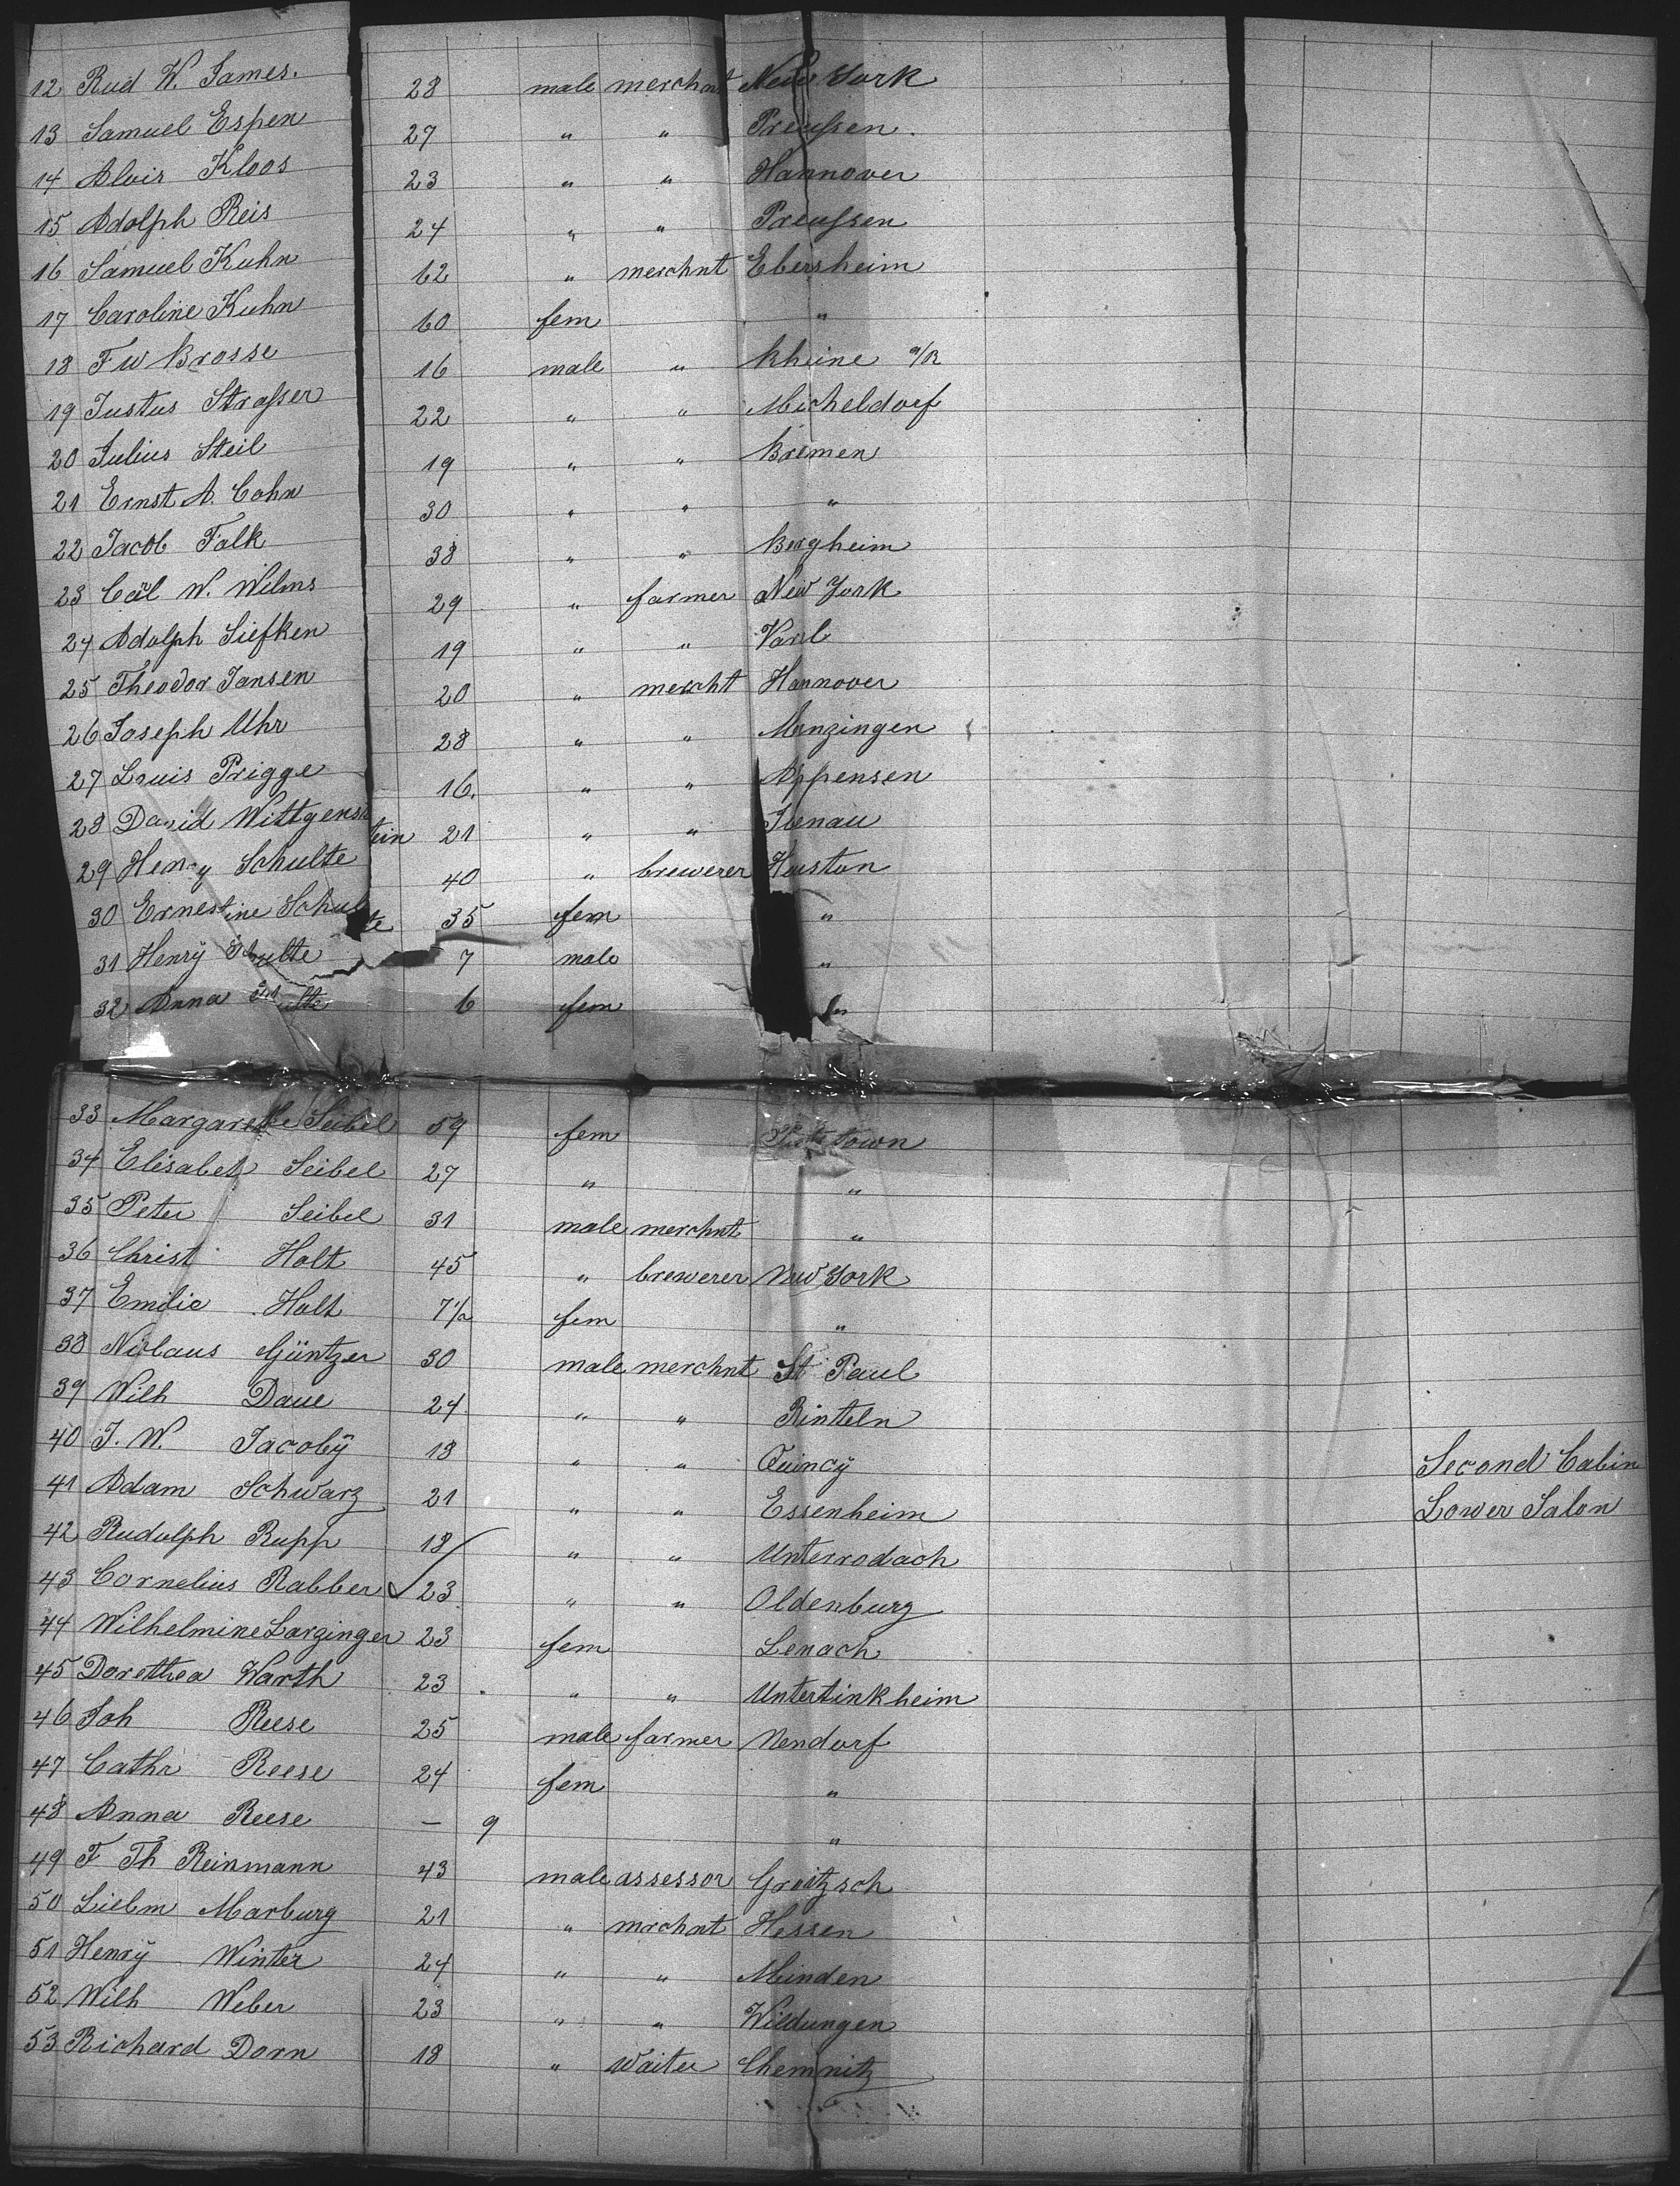 12 Rud W. James. 28 male merchant New York
13 Samuel Espen 27 " " Preussen.
14 Alois Kloos 23 " " Hannover
15 Adolph Reis 24 " " Preussen
16 Samuel Kuhn 62 " merchnt Ebersheim
17 Caroline Kuhn 60 fem "
18 F W Brosse 16 male " Rheine a/R
19 Justus Strasser 22 " " Micheldorf
20 Julius Steil 19 " " Bremen
21 Ernst A. Cohn 30 " " "
22 Jacob Falk 38 " " Bergheim
23 Carl W. Wilms 29 " farmer New York
24 Adolph Siefken 19 " " Varel
25 Theodor Jansen 20 " mercht Hannover
26 Joseph Uhr 28 " " Menzingen
27 Louis Prigge 16. " " Appensen
28 David Wittgenstein 21 " " Ilenau
29 Henry Schulte 40 " brewerer Houston
30 Ernestine Schulte 35 fem "
31 Henry Schulte 7 male "
32 Anna Schulte 6 fem "
33 Margarethe Seibel 59 fem town
34 Elisabeth Seibel 27 " "
35 Peter Seibel 31 male merchnt "
36 Christ Holt 45 " brewerer New York
37 Emilie Holt 7 1/2 fem "
38 Niclaus Güntzer 30 male merchnt St Paul
39 Wilh Daue 24 " " Rinteln
40 J. W. Jacoby 18 " " Quincy Second Cabin
41 Adam Schwarz 21 " " Essenheim Lower Salon
42 Rudolph Rupp 18 " " Unterrodach
43 Cornelius Rabber 23 " " Oldenburg
44 Wilhelmine Larzinger 23 fem Lenach
45 Dorethea Warth 23 " " Untertinkheim
46 Joh Reese 25 male farmer Nendorf
47 Cathr Reese 24 fem "
48 Anna Reese — 9 "
49 F Th Reinmann 43 male assessor Groitzsch
50 Liebm Marburg 21 " mrchnt Hessen
51 Henry Winter 24 " " Minden
52 Wilh Weber 23 " " Wildungen
53 Richard Dorn 18 " Waiter Chemnitz